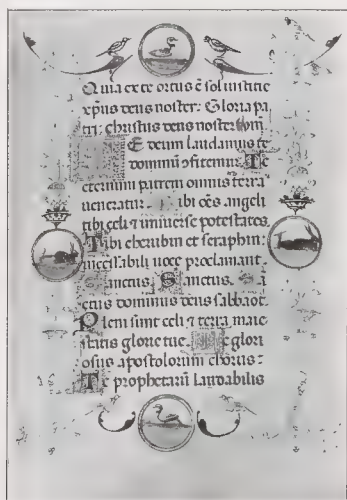 Quia ex te ortus ē sol iustitie
xp̄us deus noster: Gloria pa
tri: christus deus noster
E deum laudamus te
dominū ꝯfitemur: Te
eternum patrem omnis terra
ueneratur. ibi oēs angeli
tibi celi ⁊ uniuerse potestates
Tibi cherubin et seraphin:
incessabili uoce proclamant.
anctus. Sanctus.
ctus dominus deus sabbaot.
Pleni sunt celi ⁊ terra maie
statis glorie tue. e glori
osus apostolorum chorus:
Te prophetarū laudabilis